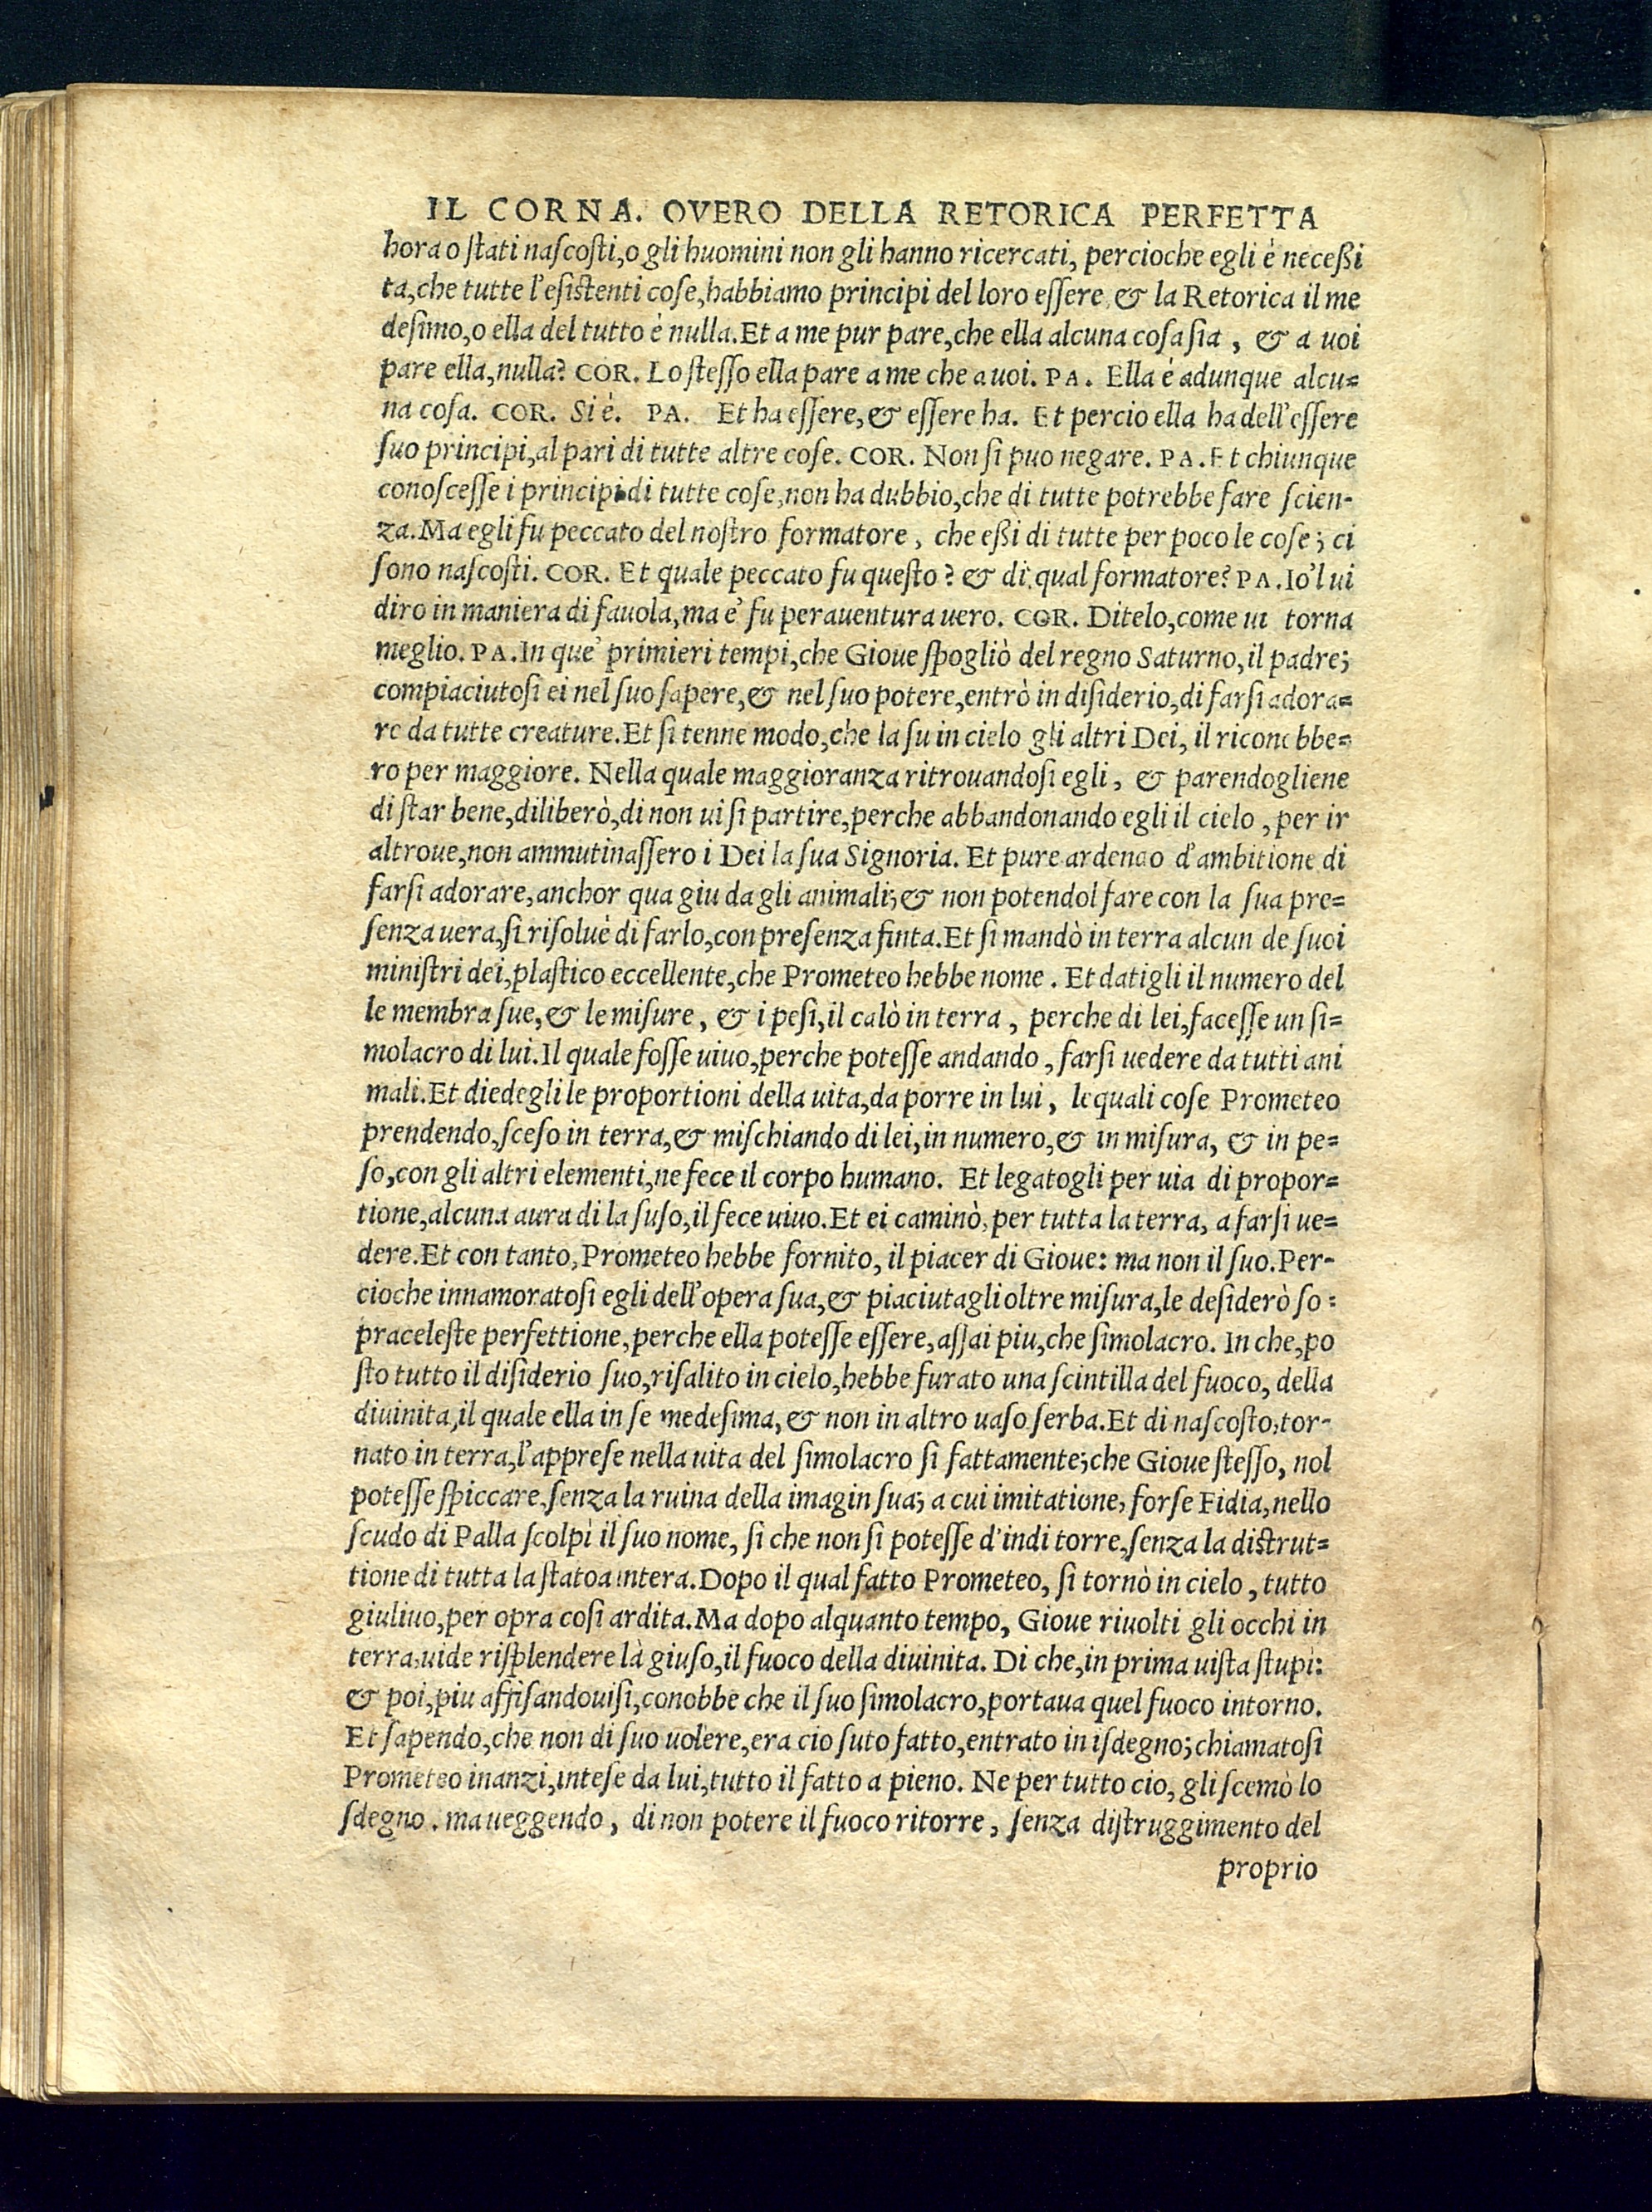 IL CORNA. OVERO DELLA RETORICA PERFETTA
hora o ſtati naſcoſti, o gli huomini non gli hanno ricercati, percioche egli è neceßi
ta, che tutte l'eſistenti coſe, habbiamo principi del loro eſſere, & la Retorica il me
deſimo, o ella del tutto è nulla. Et a me pur pare, che ella alcuna coſa ſia, & a uoi
pare ella, nulla? COR. Lo ſteſſo ella pare a me che a uoi. PA. Ella è adunque alcu=
na coſa. COR. Si è. PA. Et ha eſſere, & eſſere ha. Et percio ella ha dell'eſſere
ſuo principi, al pari di tutte altre coſe. COR. Non ſi puo negare. PA. Et chiunque
conoſceſſe i principi di tutte coſe, non ha dubbio, che di tutte potrebbe fare ſcien-
za. Ma egli fu peccato del noſtro formatore, che eßi di tutte per poco le coſe; ci
ſono naſcoſti. COR. Et quale peccato fu queſto? & di qual formatore? PA. Io'l ui
diro in maniera di fauola, ma e' fu perauentura uero. COR. Ditelo, come ui torna
meglio. PA. In que' primieri tempi, che Gioue ſpogliò del regno Saturno, il padre;
compiaciutoſi ei nel ſuo ſapere, & nel ſuo potere, entrò in diſiderio, di farſi adora=
re da tutte creature. Et ſi tenne modo, che la ſu in cielo gli altri Dei, il riconobbe=
ro per maggiore. Nella quale maggioranza ritrouandoſi egli, & parendogliene
di ſtar bene, diliberò, di non ui ſi partire, perche abbandonando egli il cielo, per ir
altroue, non ammutinaſſero i Dei la ſua Signoria. Et pure ardendo d'ambitione di
farſi adorare, anchor qua giu da gli animali; & non potendol fare con la ſua pre=
ſenza uera, ſi riſoluè di farlo, con preſenza finta. Et ſi mandò in terra alcun de ſuoi
miniſtri dei, plaſtico eccellente, che Prometeo hebbe nome. Et datigli il numero del
le membra ſue, & le miſure, & i peſi, il calò in terra, perche di lei, faceſſe un ſi=
molacro di lui. Il quale foſſe uiuo, perche poteſſe andando, farſi uedere da tutti ani
mali. Et diedegli le proportioni della uita, da porre in lui, le quali coſe Prometeo
prendendo, ſceſo in terra, & miſchiando di lei, in numero, & in miſura, & in pe=
ſo, con gli altri elementi, ne fece il corpo humano. Et legatogli per uia di propor=
tione, alcuna aura di la ſuſo, il fece uiuo. Et ei caminò, per tutta la terra, a farſi ue=
dere. Et con tanto, Prometeo hebbe fornito, il piacer di Gioue: ma non il ſuo. Per-
cioche innamoratoſi egli dell'opera ſua, & piaciutagli oltre miſura, le deſiderò ſo=
praceleſte perfettione, perche ella poteſſe eſſere, aſſai piu, che ſimolacro. In che, po
ſto tutto il diſiderio ſuo, riſalito in cielo, hebbe furato una ſcintilla del fuoco, della
diuinita, il quale ella in ſe medeſima, & non in altro uaſo ſerba. Et di naſcoſto, tor-
nato in terra, l'appreſe nella uita del ſimolacro ſi fattamente; che Gioue ſteſſo, nol
poteſſe ſpiccare, ſenza la ruina della imagin ſua; a cui imitatione, forſe Fidia, nello
ſcudo di Palla ſcolpì il ſuo nome, ſi che non ſi poteſſe d'indi torre, ſenza la diſtrut=
tione di tutta la ſtatoa intera. Dopo il qual fatto Prometeo, ſi tornò in cielo, tutto
giuliuo, per opra coſi ardita. Ma dopo alquanto tempo, Gioue riuolti gli occhi in
terra, uide riſplendere là giuſo, il fuoco della diuinita. Di che, in prima uiſta ſtupì:
& poi, piu affiſandouiſi, conobbe che il ſuo ſimolacro, portaua quel fuoco intorno.
Et ſapendo, che non di ſuo uolere, era cio ſuto fatto, entrato in iſdegno; chiamatoſi
Prometeo inanzi, inteſe da lui, tutto il fatto a pieno. Ne per tutto cio, gli ſcemò lo
ſdegno. ma ueggendo, di non potere il fuoco ritorre, ſenza diſtruggimento del
proprio